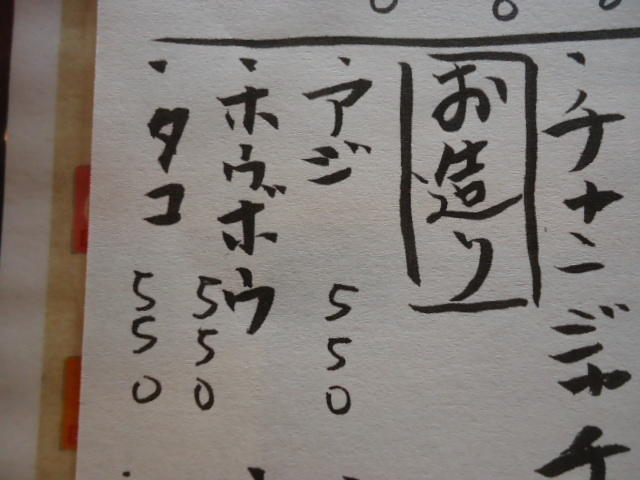 ・チャンジャチ
お造り
・アジ 550
・ホウボウ 550
・タコ 550